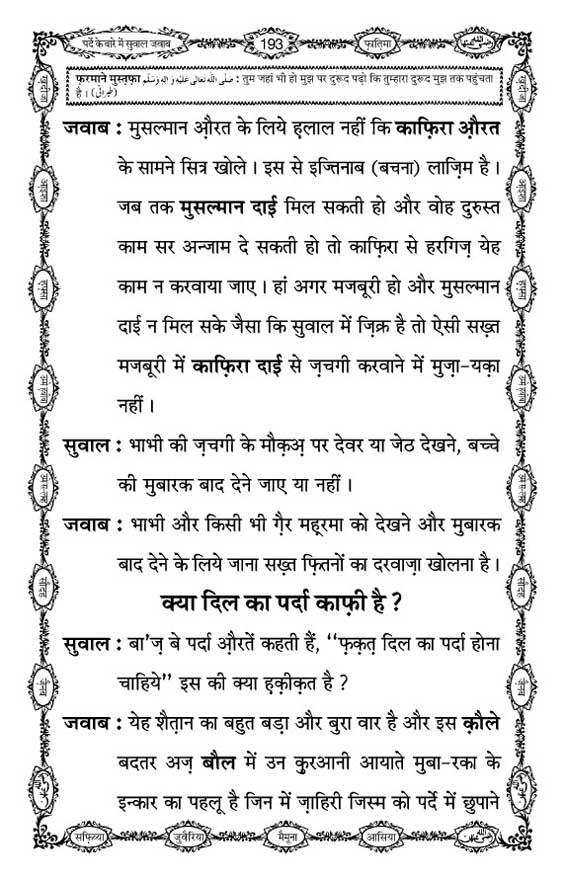 पर्दे के बारे में सुवाल जवाब
193
फ़ातिमा
फरमाने मुस्तफ़ा صَلَّى اللهُ تَعَالٰى عَلَيْهِ وَاٰلِهٖ وَسَلَّم : तुम जहां भी हो मुझ पर दुरूद पढ़ो कि तुम्हारा दुरूद मुझ तक पहुंचता
है । (طبرانی)
जवाब : मुसल्मान औ़रत के लिये ह़लाल नहीं कि काफ़िरा औ़रत
के सामने सित्र खोले । इस से इज्तिनाब (बचना) लाज़िम है ।
जब तक मुसल्मान दाई मिल सकती हो और वोह दुरुस्त
काम सर अन्जाम दे सकती हो तो काफ़िरा से हरगिज़ येह
काम न करवाया जाए । हां अगर मजबूरी हो और मुसल्मान
दाई न मिल सके जैसा कि सुवाल में ज़िक्र है तो ऐसी सख़्त
मजबूरी में काफ़िरा दाई से ज़चगी करवाने में मुज़ा-यक़ा
नहीं ।
सुवाल : भाभी की ज़चगी के मौक़अ़ पर देवर या जेठ देखने, बच्चे
की मुबारक बाद देने जाए या नहीं ।
जवाब : भाभी और किसी भी ग़ैर महूरमा को देखने और मुबारक
बाद देने के लिये जाना सख़्त फ़ितनों का दरवाज़ा खोलना है ।
क्या दिल का पर्दा काफ़ी है ?
सुवाल : बा'ज़ बे पर्दा औ़रतें कहती हैं, ‘‘फ़क़त़ दिल का पर्दा होना
चाहिये’’ इस की क्या ह़क़ीक़त है ?
जवाब : येह शैत़ान का बहुत बड़ा और बुरा वार है और इस क़ौले
बदतर अज़ बौल में उन क़ुरआनी आयाते मुबा-रका के
इन्कार का पहलू है जिन में ज़ाहिरी जिस्म को पर्दे में छुपाने
सफ़िय्या
जुवैरिया
मैमूना
आसिया